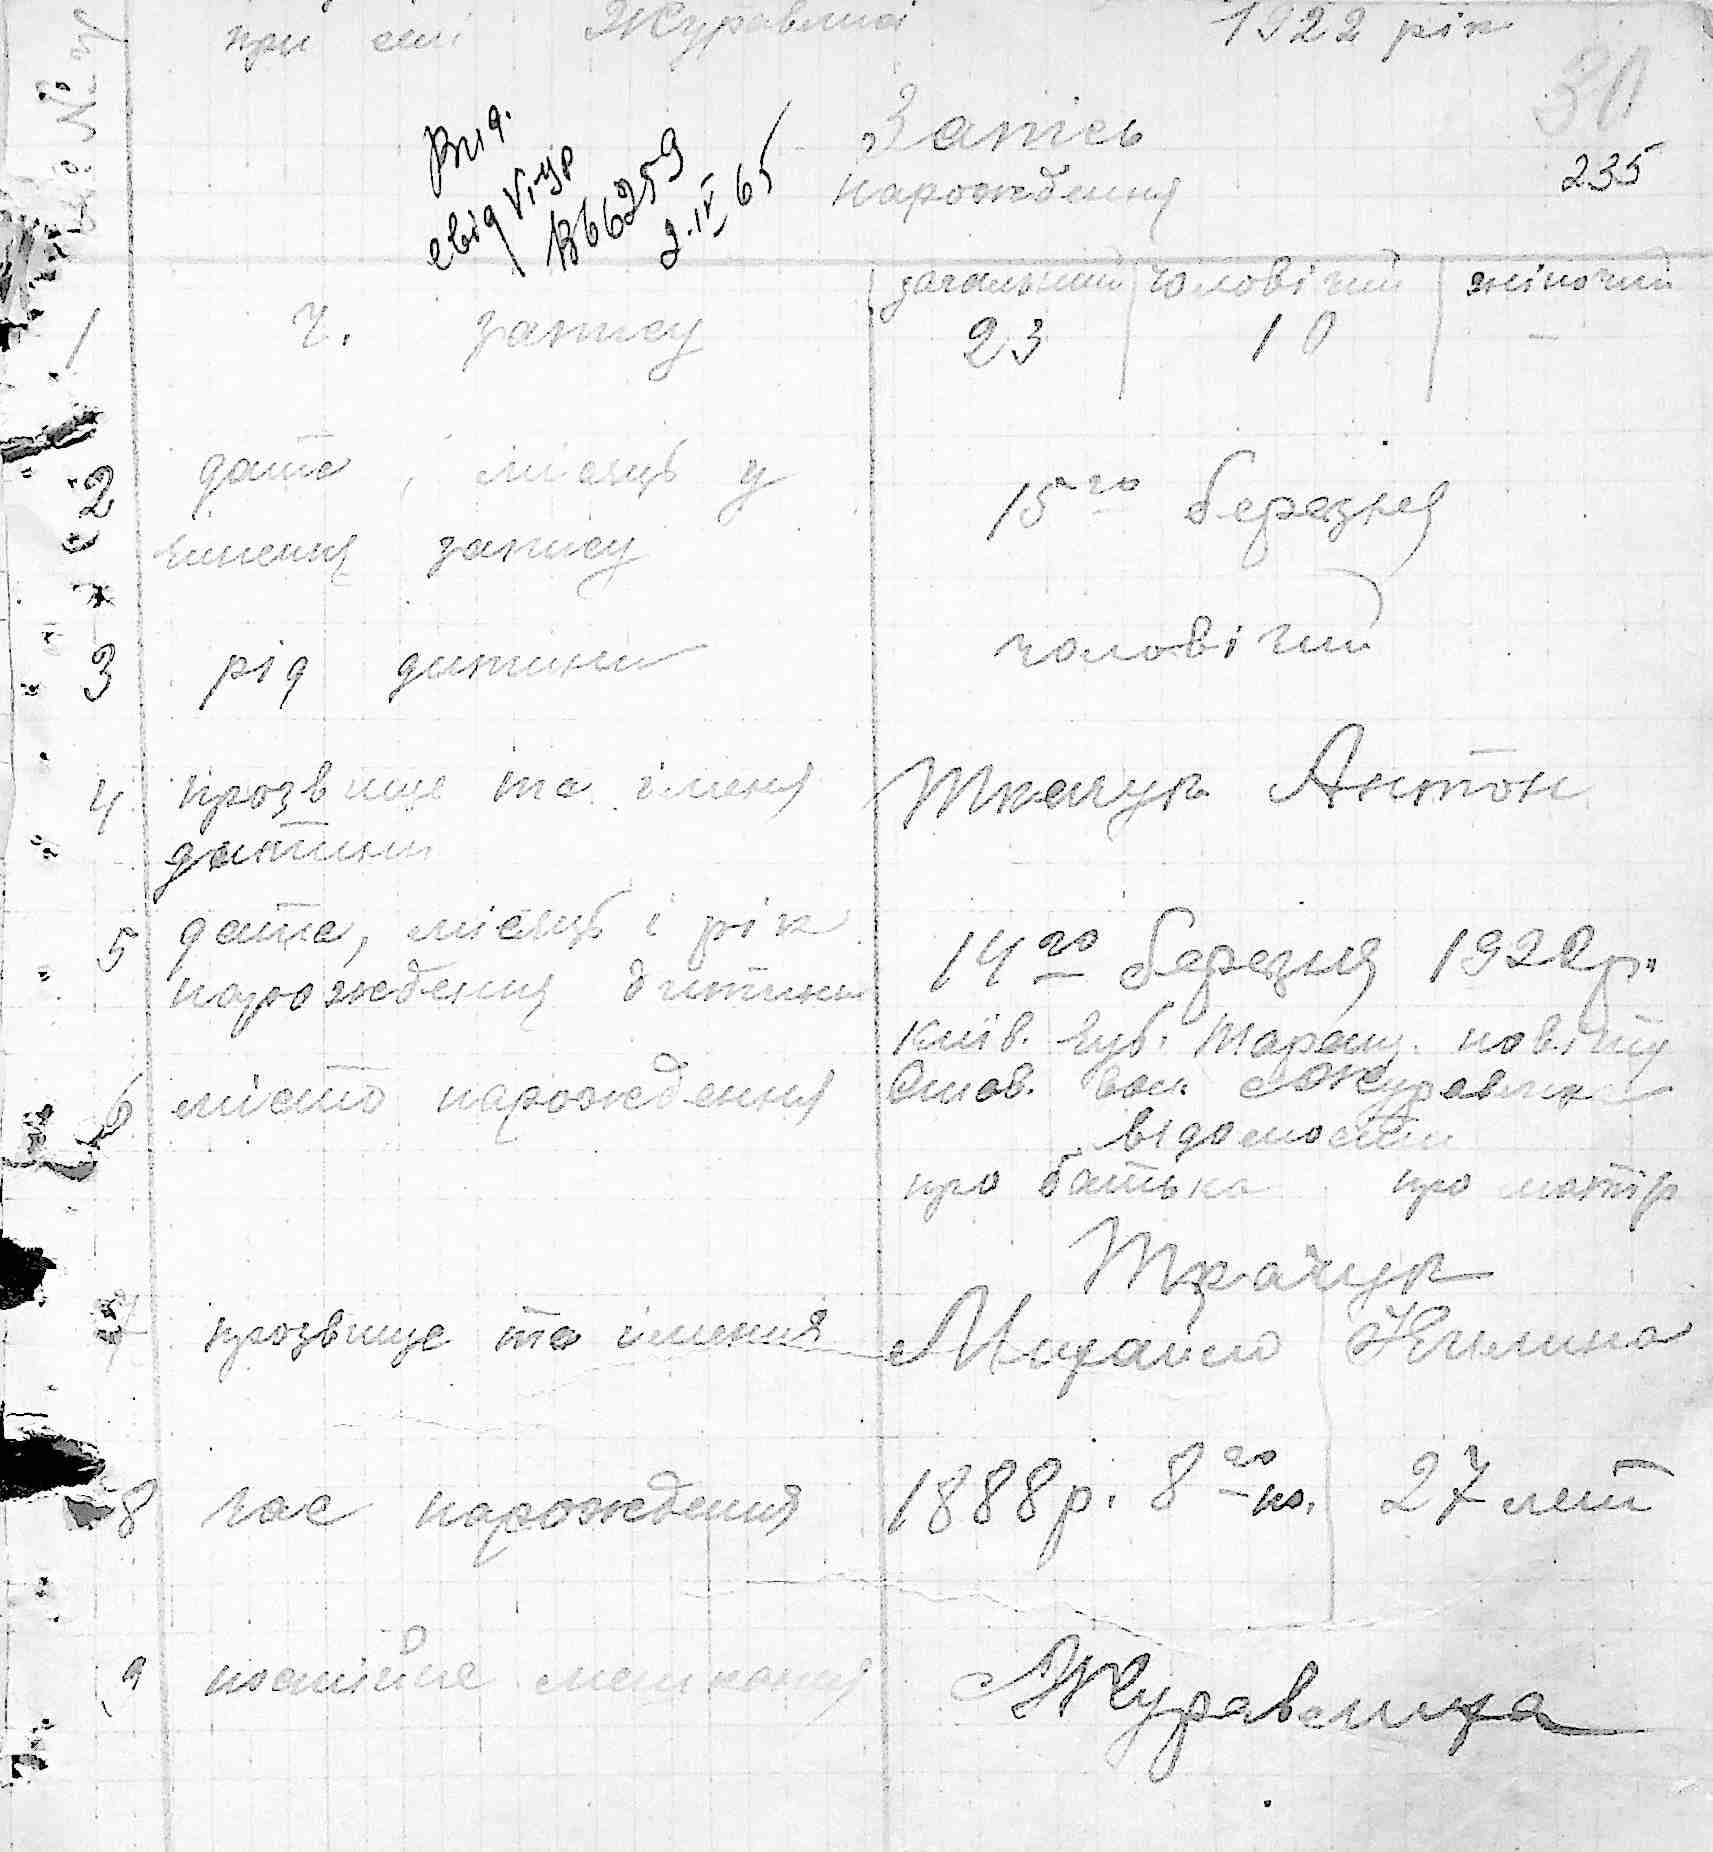 при селі Журавлисі 1922 рік
30
Запись
народження
235
Вид.
свід VI-УР
В66259
2.IV 65
загальний чоловічий жіночий
1 ч. запису 23 10 –
2 дата, місяць у
чинення запису
15го березня
3 рід дитини чоловічий
4 прозвище та імення
дитини
Ткачук Антон
5 дата, місяць і рік
народження дитини
14го березня 1922 р.
6 місто народження
Київ. губ. Таращ. повіту
Став. вол. с Журавлиха
відомости
про батька про матір
Ткачук
7 прозвище та імення Михайло Килина
8 час народження 1888 р. 8го но. 27 лет
9 постійне мешкання Журавлиха